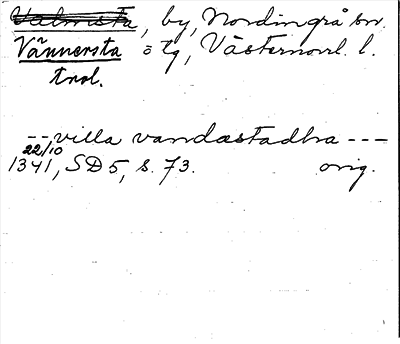 Valmsta, by, Nordingrå sn.
Vännersta ö tg, Västernorrl. l.
trol.
-- villa vandastadha ---
22/10
1341, SD 5, s. 73. orig.